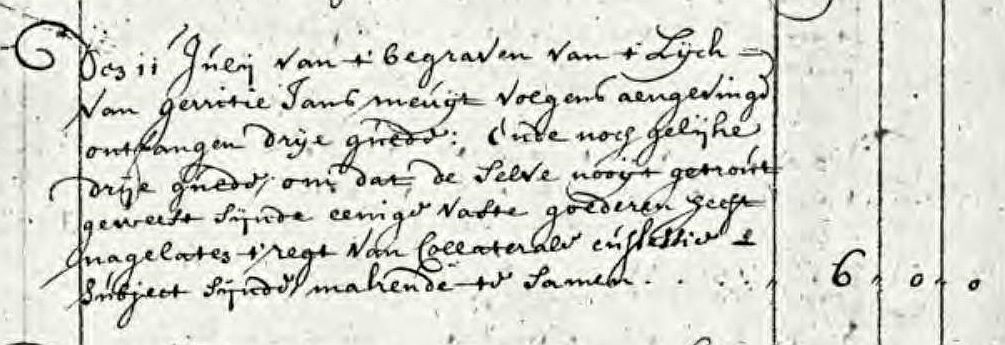 Den 11 Julij van t begraven van t Lijch
van gerritie Jans meuijt volgens aengevinge
ontfangen drije guldē: ende noch gelijke
drije guldē, om dat de selve nooijt getrout
geweest sijnde eenige vaste goederen heeft
nagelaten t regt van Collaterale successie
subject sijnde, makende te samen . . . . 6 , 0 , 0